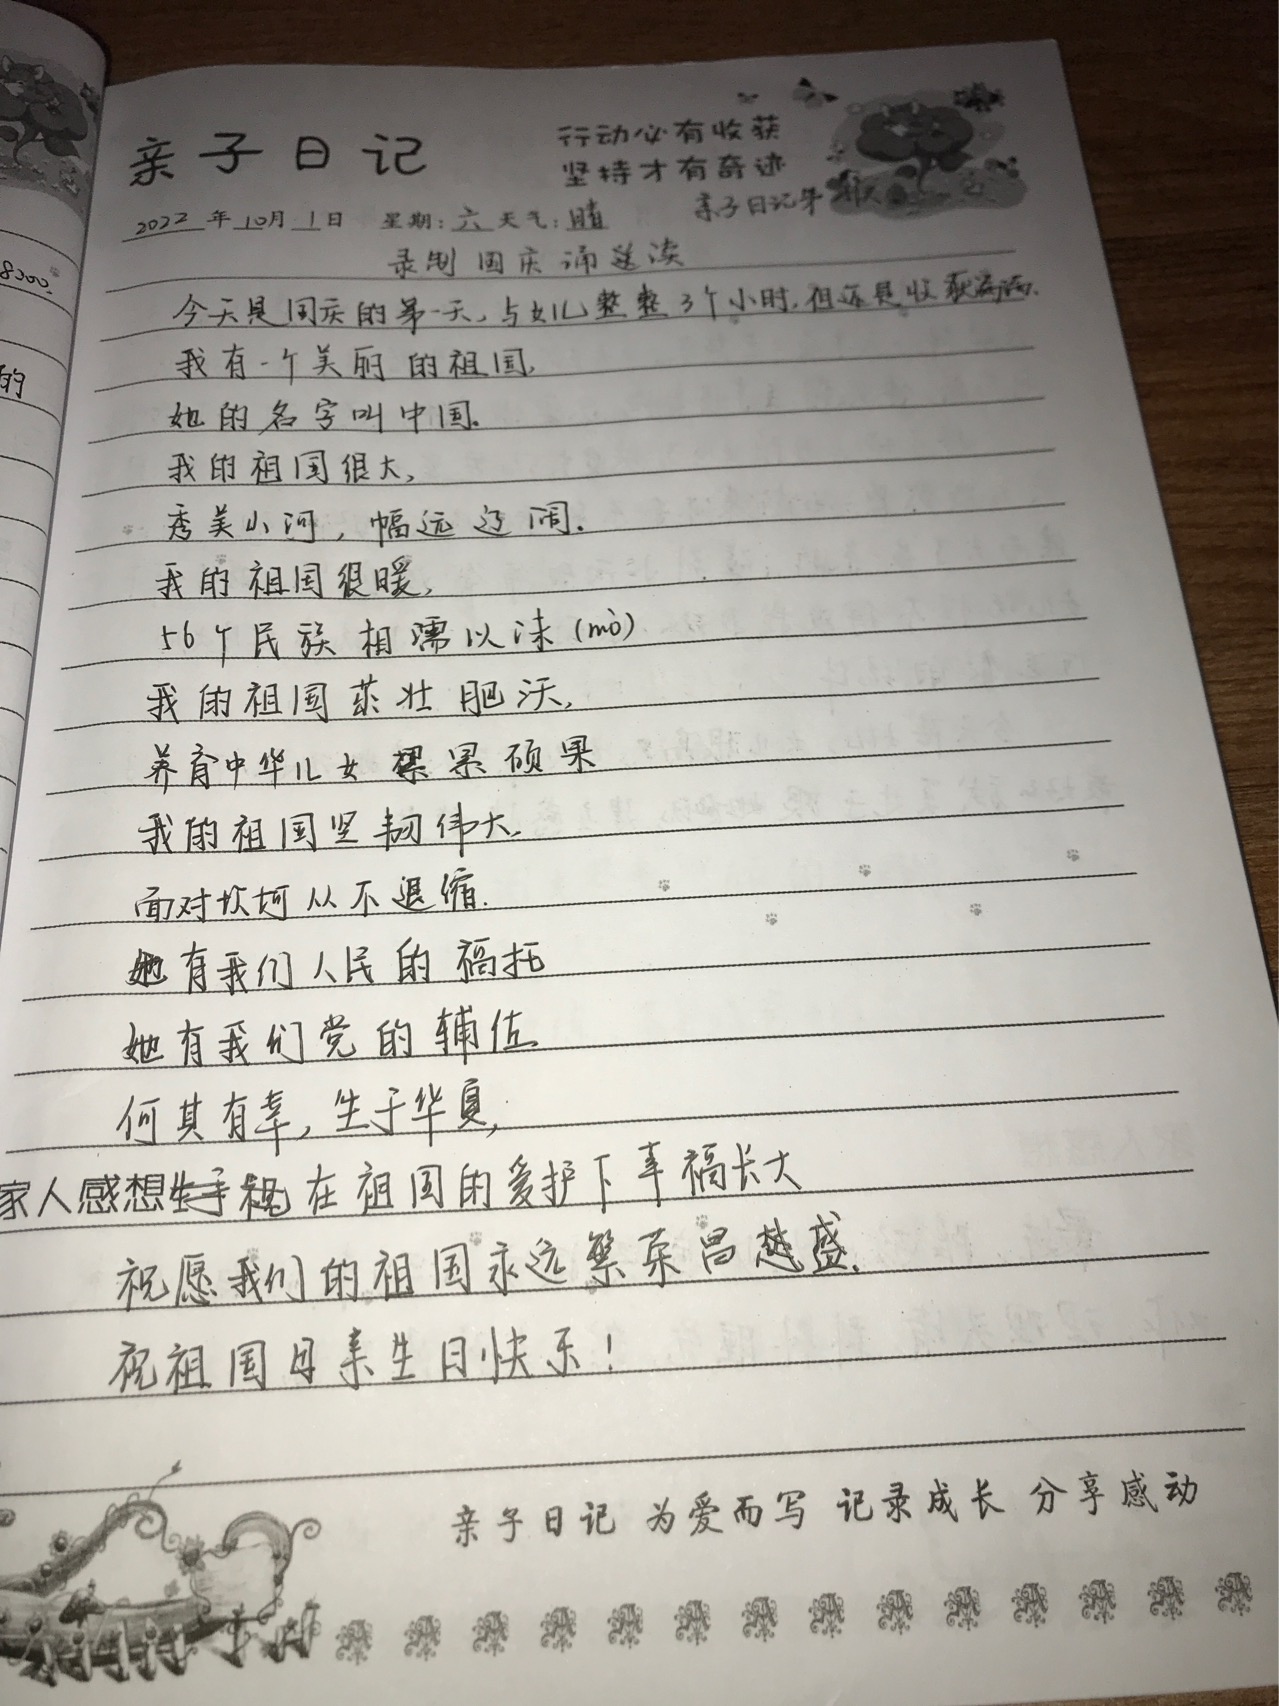 8200.
的
亲子日记
行动必有收获
坚持才有奇迹
亲子日记第 天
2022年10月1日 星期:六天气:晴
录制国庆诵读
今天是国庆的第一天,与女儿整整3个小时,但还是收获满满.
我有一个美丽的祖国,
她的名字叫中国。
我的祖国很大,
秀美山河,幅远辽阔.
我的祖国很暖,
56个民族相濡以沫(mò)
我的祖国茁壮肥沃,
养育中华儿女累果硕果
我的祖国坚韧伟大.
面对坎坷从不退缩.
她有我们人民的福托
她有我们党的辅佐
何其有幸,生于华夏,
家人感想 在祖国的爱护下幸福长大
祝愿我们的祖国永远繁荣昌盛.
祝祖国母亲生日快乐!
亲子日记 为爱而写 记录成长 分享感动